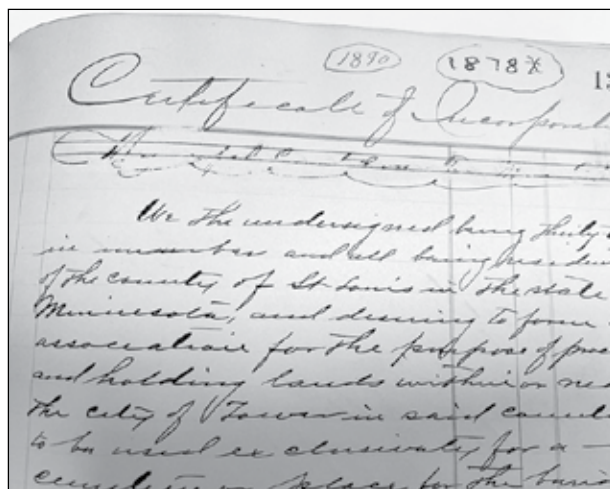 1890 1878x 13
Certificate of Incorporat
We the undersigned being thirty
in number and all being residen
of the county of St Louis in the state
Minnesota, and desiring to form
association for the purpose of proc
and holding lands within or nea
the city of Tower in said count
to be used exclusively for a
cemetery or place for the buria